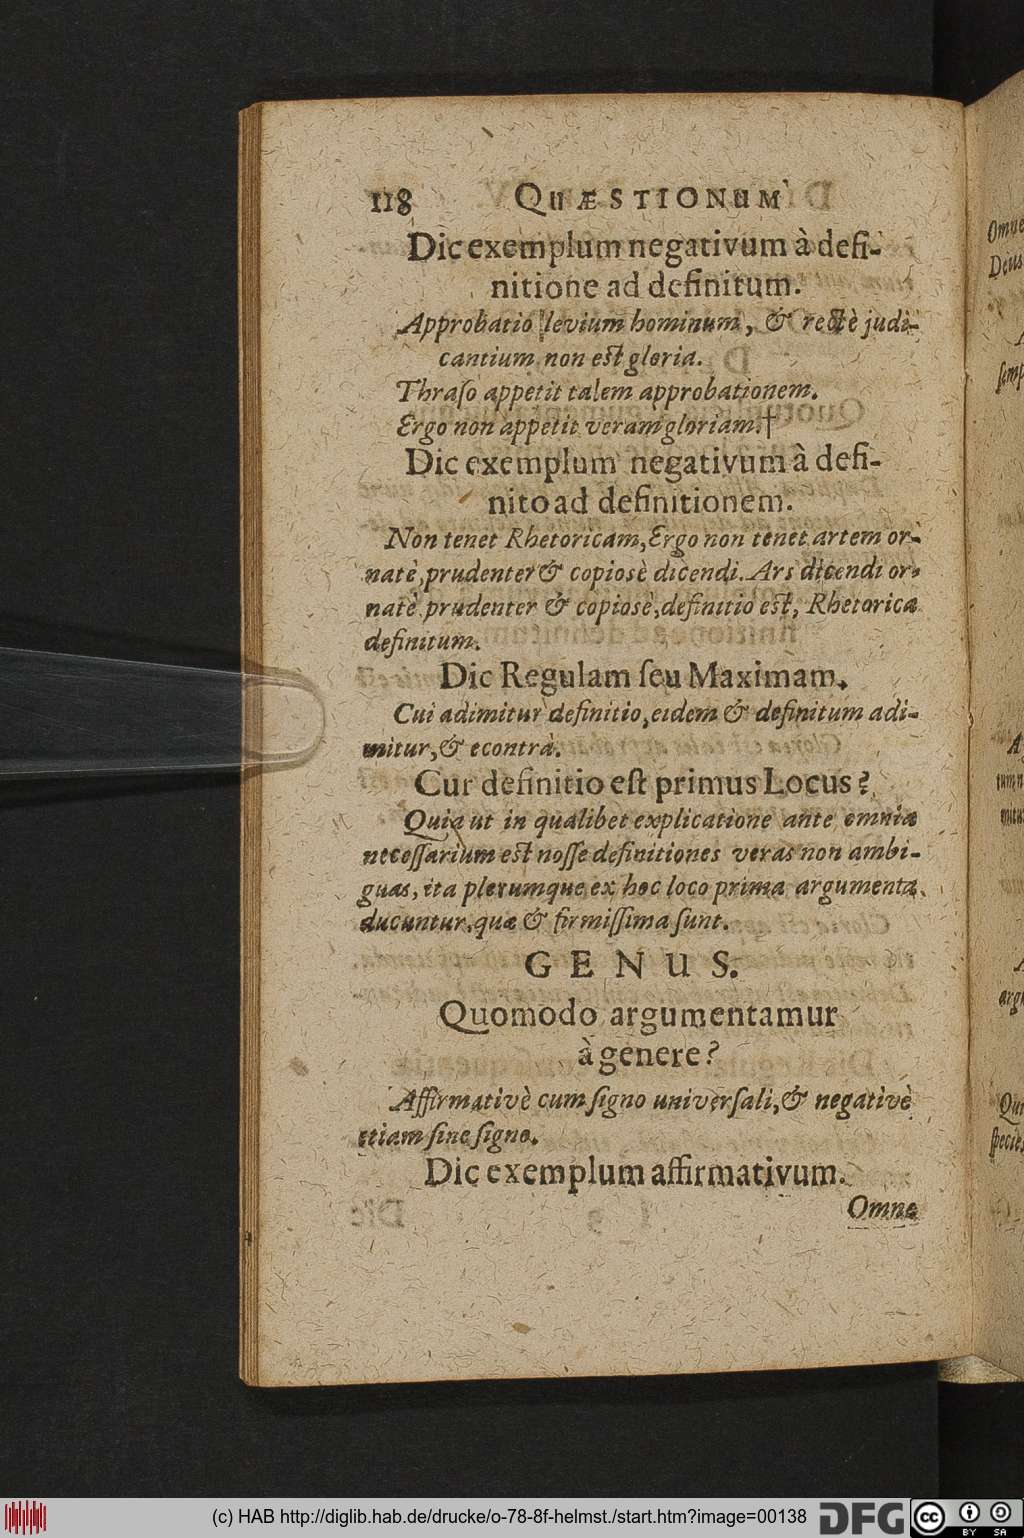 118 QUÆSTIONUM
Dic exemplum negativum à defi-
nitione ad definitum.
Approbatio levium hominum, & rectè judi-
cantium non est gloria.
Thraſo appetit talem approbationem.
Ergo non appetit veram gloriam.†
Dic exemplum negativum à defi-
nito ad definitionem.
Non tenet Rhetoricam, Ergo non tenet artem or-
natè, prudenter & copiosè dicendi. Ars dicendi or-
natè prudenter & copiosè, definitio est, Rhetorica
definitum.
Dic Regulam ſeu Maximam.
Cui adimitur definitio, eidem & definitum adi-
mitur, & econtrà.
Cur definitio eſt primus Locus?
Quia ut in qualibet explicatione ante omnia
neceſſarium est noſſe definitiones veras non ambi-
guas, ita plerumque ex hoc loco prima argumenta
ducuntur, quæ & firmiſſima ſunt.
GENUS.
Quomodo argumentamur
à genere?
Affirmativè cum ſigno univerſali, & negativè
etiam ſine ſigno.
Dic exemplum affirmativum.
Omne
Omne
Deus
ſemp
A
tum n
mitur
argu
Qui
ſpecies
(c) HAB http://diglib.hab.de/drucke/o-78-8f-helmst./start.htm?image=00138 DFG cc BY SA